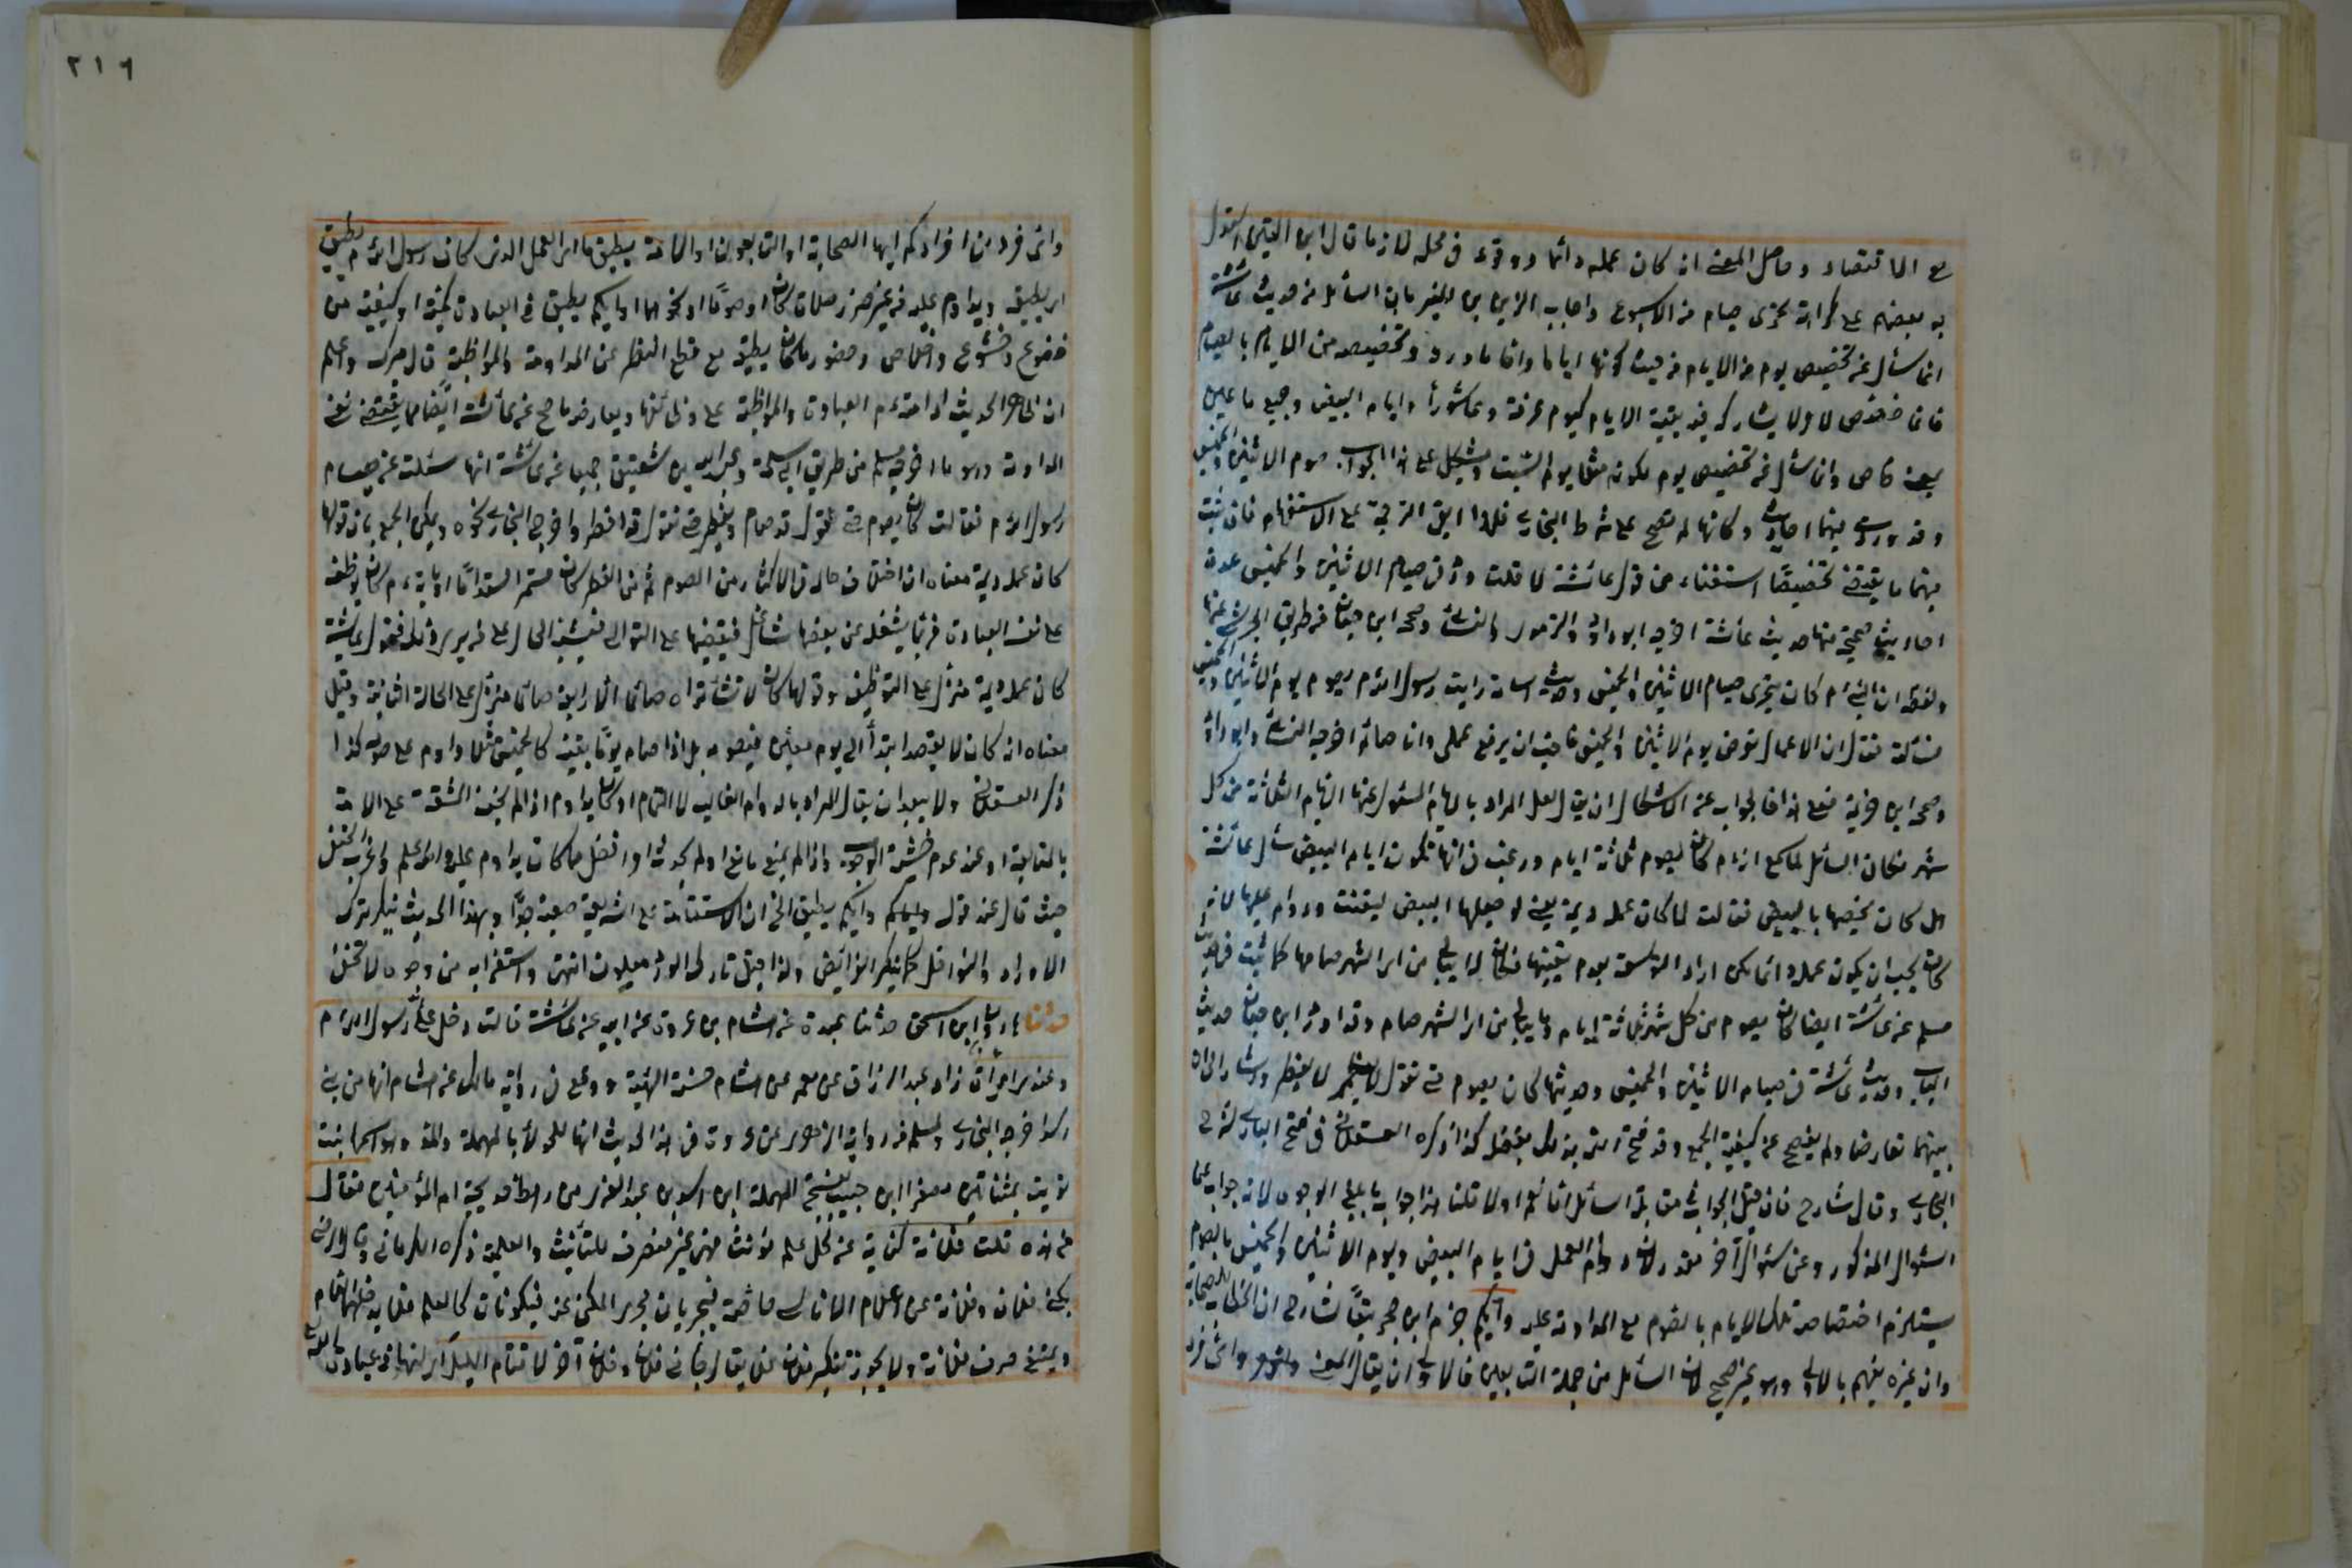 مع الاقتصاد وحاصل المعنى انه كان عمله دائما ووقوعه في محله لازما قال ابن التين استدل
به بعضهم على كراهة تحري صيام من الاسبوع واجاب الزين بن المنير بان السائل في حديث عائشة
انما سأل عن تخصيص يوم من الايام من حيث كونها اياما واما ما ورد وتخصيصه من الايام بالصيام
فانما خصص لامر لا يشاركه فيه بقية الايام كيوم عرفة وعاشوراء وايام البيض وجميع ما عين
بمعنى خاص وانما سأل عن تخصيص يوم لكونه مثلا يوم السبت ويشكل على هذا الجواب صوم الاثنين والخميس
وقد وردت فيهما احاديث وكانها لم تصح على شرط البخاري فلهذا ابقى الترجمة على الاستفهام فان ثبت
فيهما ما يقتضي تخصيصا استثناء من قول عائشة لا قلت ورد في صيام الاثنين والخميس عدة
احاديث صحيحة منها حديث عائشة اخرجه ابو داود والترمذي والنسائي وصححه ابن حبان من طريق الجرشي عنها
ولفظه ان النبي م كان يتحرى صيام الاثنين والخميس وحديث اسامة رايت رسول الله م يصوم يوم الاثنين والخميس
فسألته فقال ان الاعمال تعرض يوم الاثنين والخميس فاحب ان يرفع عملي وانا صائم اخرجه النسائي وابو داود
وصححه ابن خزيمة فعلى هذا فالجواب عن الاشكال ان يقال لعل المراد بالايام المسئول عنها الايام الثلاثة من كل
شهر فكان السائل لما سمع انه م كان يصوم ثلاثة ايام ورغب في انها تكون ايام البيض سأل عائشة
هل كان يخصها بالبيض فقالت لا كان عمله ديمة يعني لو جعلها البيض لتعينت وداوم عليها لانه
كان يحب ان يكون عمله دائما لكن اراد التوسعة بعدم تعيينها فكان لا يبالي من اي الشهر صامها كما ثبت في حديث
مسلم عن عائشة ايضا كان يصوم من كل شهر ثلاثة ايام وما يبالي من اي الشهر صام وقد اورد ابن حبان حديث
الباب وحديث عائشة في صيام الاثنين والخميس وحديثها كان يصوم حتى نقول لا يفطر واشار الى ان
بينهما تعارضا ولم يفصح عن كيفية الجمع وقد فتح الله بذلك بفضله كذا ذكره العسقلاني في فتح الباري لشرح
البخاري وقال شارح فان قيل الجواب في مقابلة السائل انما نعم او لا قلنا هذا جواب بابلغ الوجوه لانه جواب عما
السؤال المذكور وعن سؤال آخر مقدر لان دوام العمل في ايام البيض ويوم الاثنين والخميس بالصوم
يستلزم اختصاصه تلك الايام بالصوم مع المداومة عليه وايكم جزم ابن حجر تبعا لشارح ان الخطاب للصحابة
وان غيره يفهم بالاولى وهو غير صحيح لان السائل من جملة التابعين فالاولى ان يقال المعنى واي فرد
واي فرد من افرادكم ايها الصحابة او التابعون او الامة يطيق ما اي العمل الذي كان رسول الله م يطيق
اي يطيقه ويداوم عليه من غير ضرر صلاة كان او صوما او نحوهما او ايكم يطيق في العبادة كمية او كيفية من
خضوع وخشوع واخلاص وحضور ما كان يطيق مع قطع النظر عن المداومة والمواظبة قال ميرك واعلم
ان ظاهر الحديث ادامته م العبادة والمواظبة على وظائفها ويعارضه ما صح عن عائشة ايضا مما يقتضي نفي
المداومة وهو ما اخرجه مسلم من طريق ابي سلمة وعبد الله بن شقيق جميعا عن عائشة انها سئلت عن صيام
رسول الله م فقالت كان يصوم حتى نقول قد صام ويفطر حتى نقول قد افطر واخرجه البخاري نحوه ويمكن الجمع بان قولها
كان عمله ديمة معناه ان اختلاف حاله في الاكثار من الصوم ثم من الفطر كان مستمرا مستداما او بانه م كان يوظف
على نفسه العبادة فربما يشغله عن بعضها شاغل فيقضيها على التوالي فيشتبه الحال على من يرى ذلك فقول عائشة
كان عمله ديمة منزل على التوظيف وقولها كان لا تشاء تراه صائما الا رايته صائما منزل على الحالة الثانية وقيل
معناه انه كان لا يقصد ابتداء الى يوم معين فيصومه بل اذا صام يوما بعينه كالخميس مثلا داوم على صومه كذا
ذكره العسقلاني ولا يبعد ان يقال المراد بالدوام الغالب لا التمام او كان يداوم اذا لم يخف المشقة على الامة
بالمتابعة او عند عدم خشية الوجوب واذا لم يمنع مانع او لم يحدث او افضل مما كان يداوم عليه والله اعلم واغرب الحنفي
حيث قال عند قوله واياكم وايكم يطيق الخ ان الاستقامة على الشريعة صعبة جدا وبهذا الحديث ينكر ترك
الاوراد والنوافل كما ينكر الفرائض ولذا قيل تارك الورد ملعون انتهى واستغرابه من وجوه لا تخفى
حدثنا هارون بن اسحق حدثنا عبدة عن هشام بن عروة عن ابيه عن عائشة قالت دخل علي رسول الله م
وعندي امرأة زاد عبد الرزاق عن معمر عن هشام حسنة الهيئة ووقع في رواية مالك عن هشام انها من بني
اسد اخرجه البخاري ولمسلم من رواية الزهري عن عروة في هذا الحديث انها الحولاء بالمهملة والمد وهو اسمها بنت
تويت بمثناتين مصغرا ابن حبيب بفتح المهملة ابن اسد بن عبد العزى من رهط خديجة ام المؤمنين فقال
من هذه قلت فلانة كناية عن كل علم مؤنث فهي غير منصرف للتأنيث والعلمية ذكره الكرماني
يكنى بفلان وفلانة عن اعلام الاناسي خاصة فيجريان مجرى المكني عنه فيكونان كالعلم
ويمتنع صرف فلانة ولا يجوز تنكير فلان فلا يقال جاءني فلان وفلان آخر لا تنام الليل اي لتهاتم في عبادة
٢١٦